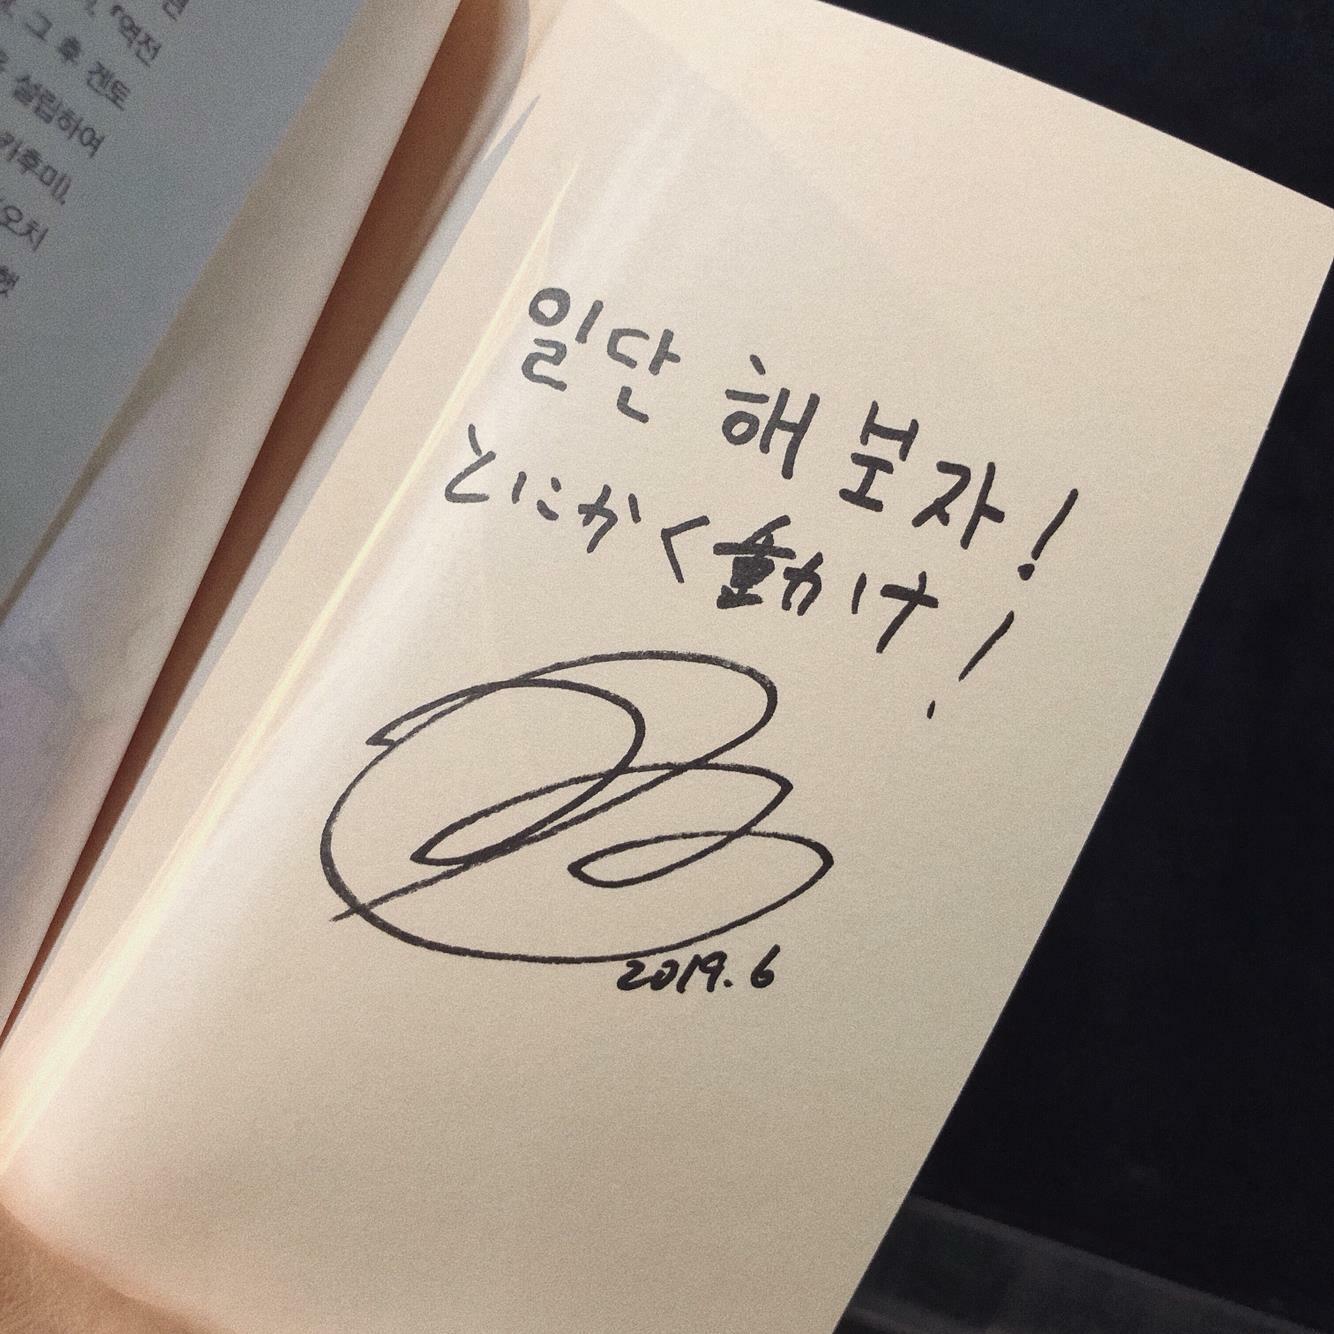 『역전
그 후 겐토
설립하여
카후미),
오치
햇
일단 해 보자!
とにかく動け!
2019.6